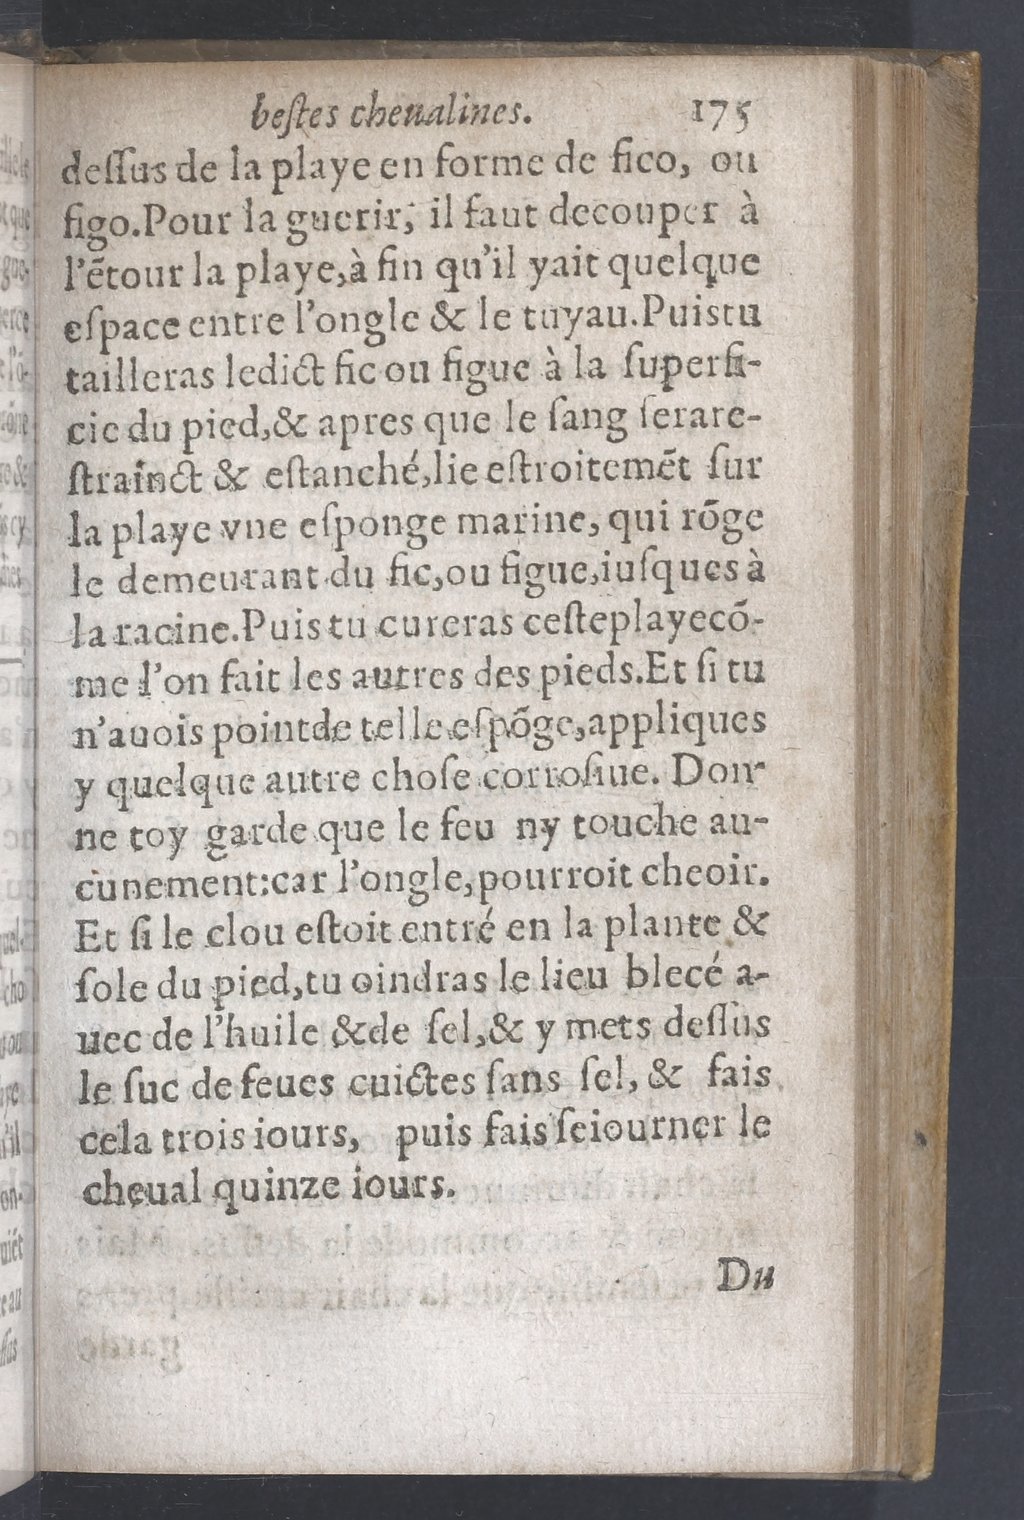 beſtes cheualines. 175
deſſus de la playe en forme de fico, ou
figo.Pour la guerir, il faut decouper à
l'ētour la playe,à fin qu'il yait quelque
eſpace entre l'ongle & le tuyau.Puis tu
tailleras ledict fic ou figue à la ſuperfi-
cie du pied,& apres que le ſang ſera re-
ſtrainct & eſtanché,lie eſtroitemēt ſur
la playe vne eſponge marine, qui rōge
le demeurant du fic,ou figue,iuſques à
la racine.Puis tu cureras ceſte playe cō-
me l'on fait les autres des pieds.Et ſi tu
n'auois point de telle eſpōge,appliques
y quelque autre choſe corroſiue. Don-
ne toy garde que le feu ny touche au-
cunement:car l'ongle,pourroit cheoir.
Et ſi le clou eſtoit entré en la plante &
ſole du pied,tu oindras le lieu blecé a-
uec de l'huile & de ſel,& y mets deſſus
le ſuc de feues cuictes ſans ſel, & fais
cela trois iours, puis fais ſeiourner le
cheual quinze iours.
Du